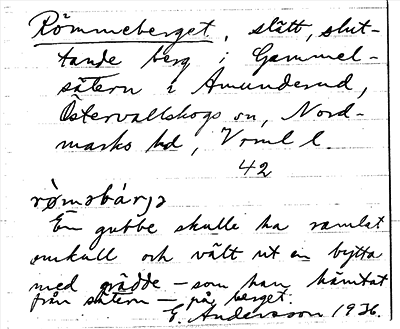 Römmeberget, slätt, slut-
tande berg i Gammel-
sätern i Amunderud,
Östervallskogs sn, Nord-
marks hd, Vrml l.
42
En gubbe skulle ha ramlat
omkull och vält ut en bytta
med grädde – som han hämtat
från sätern – på berget.
E. Andersson 1936.